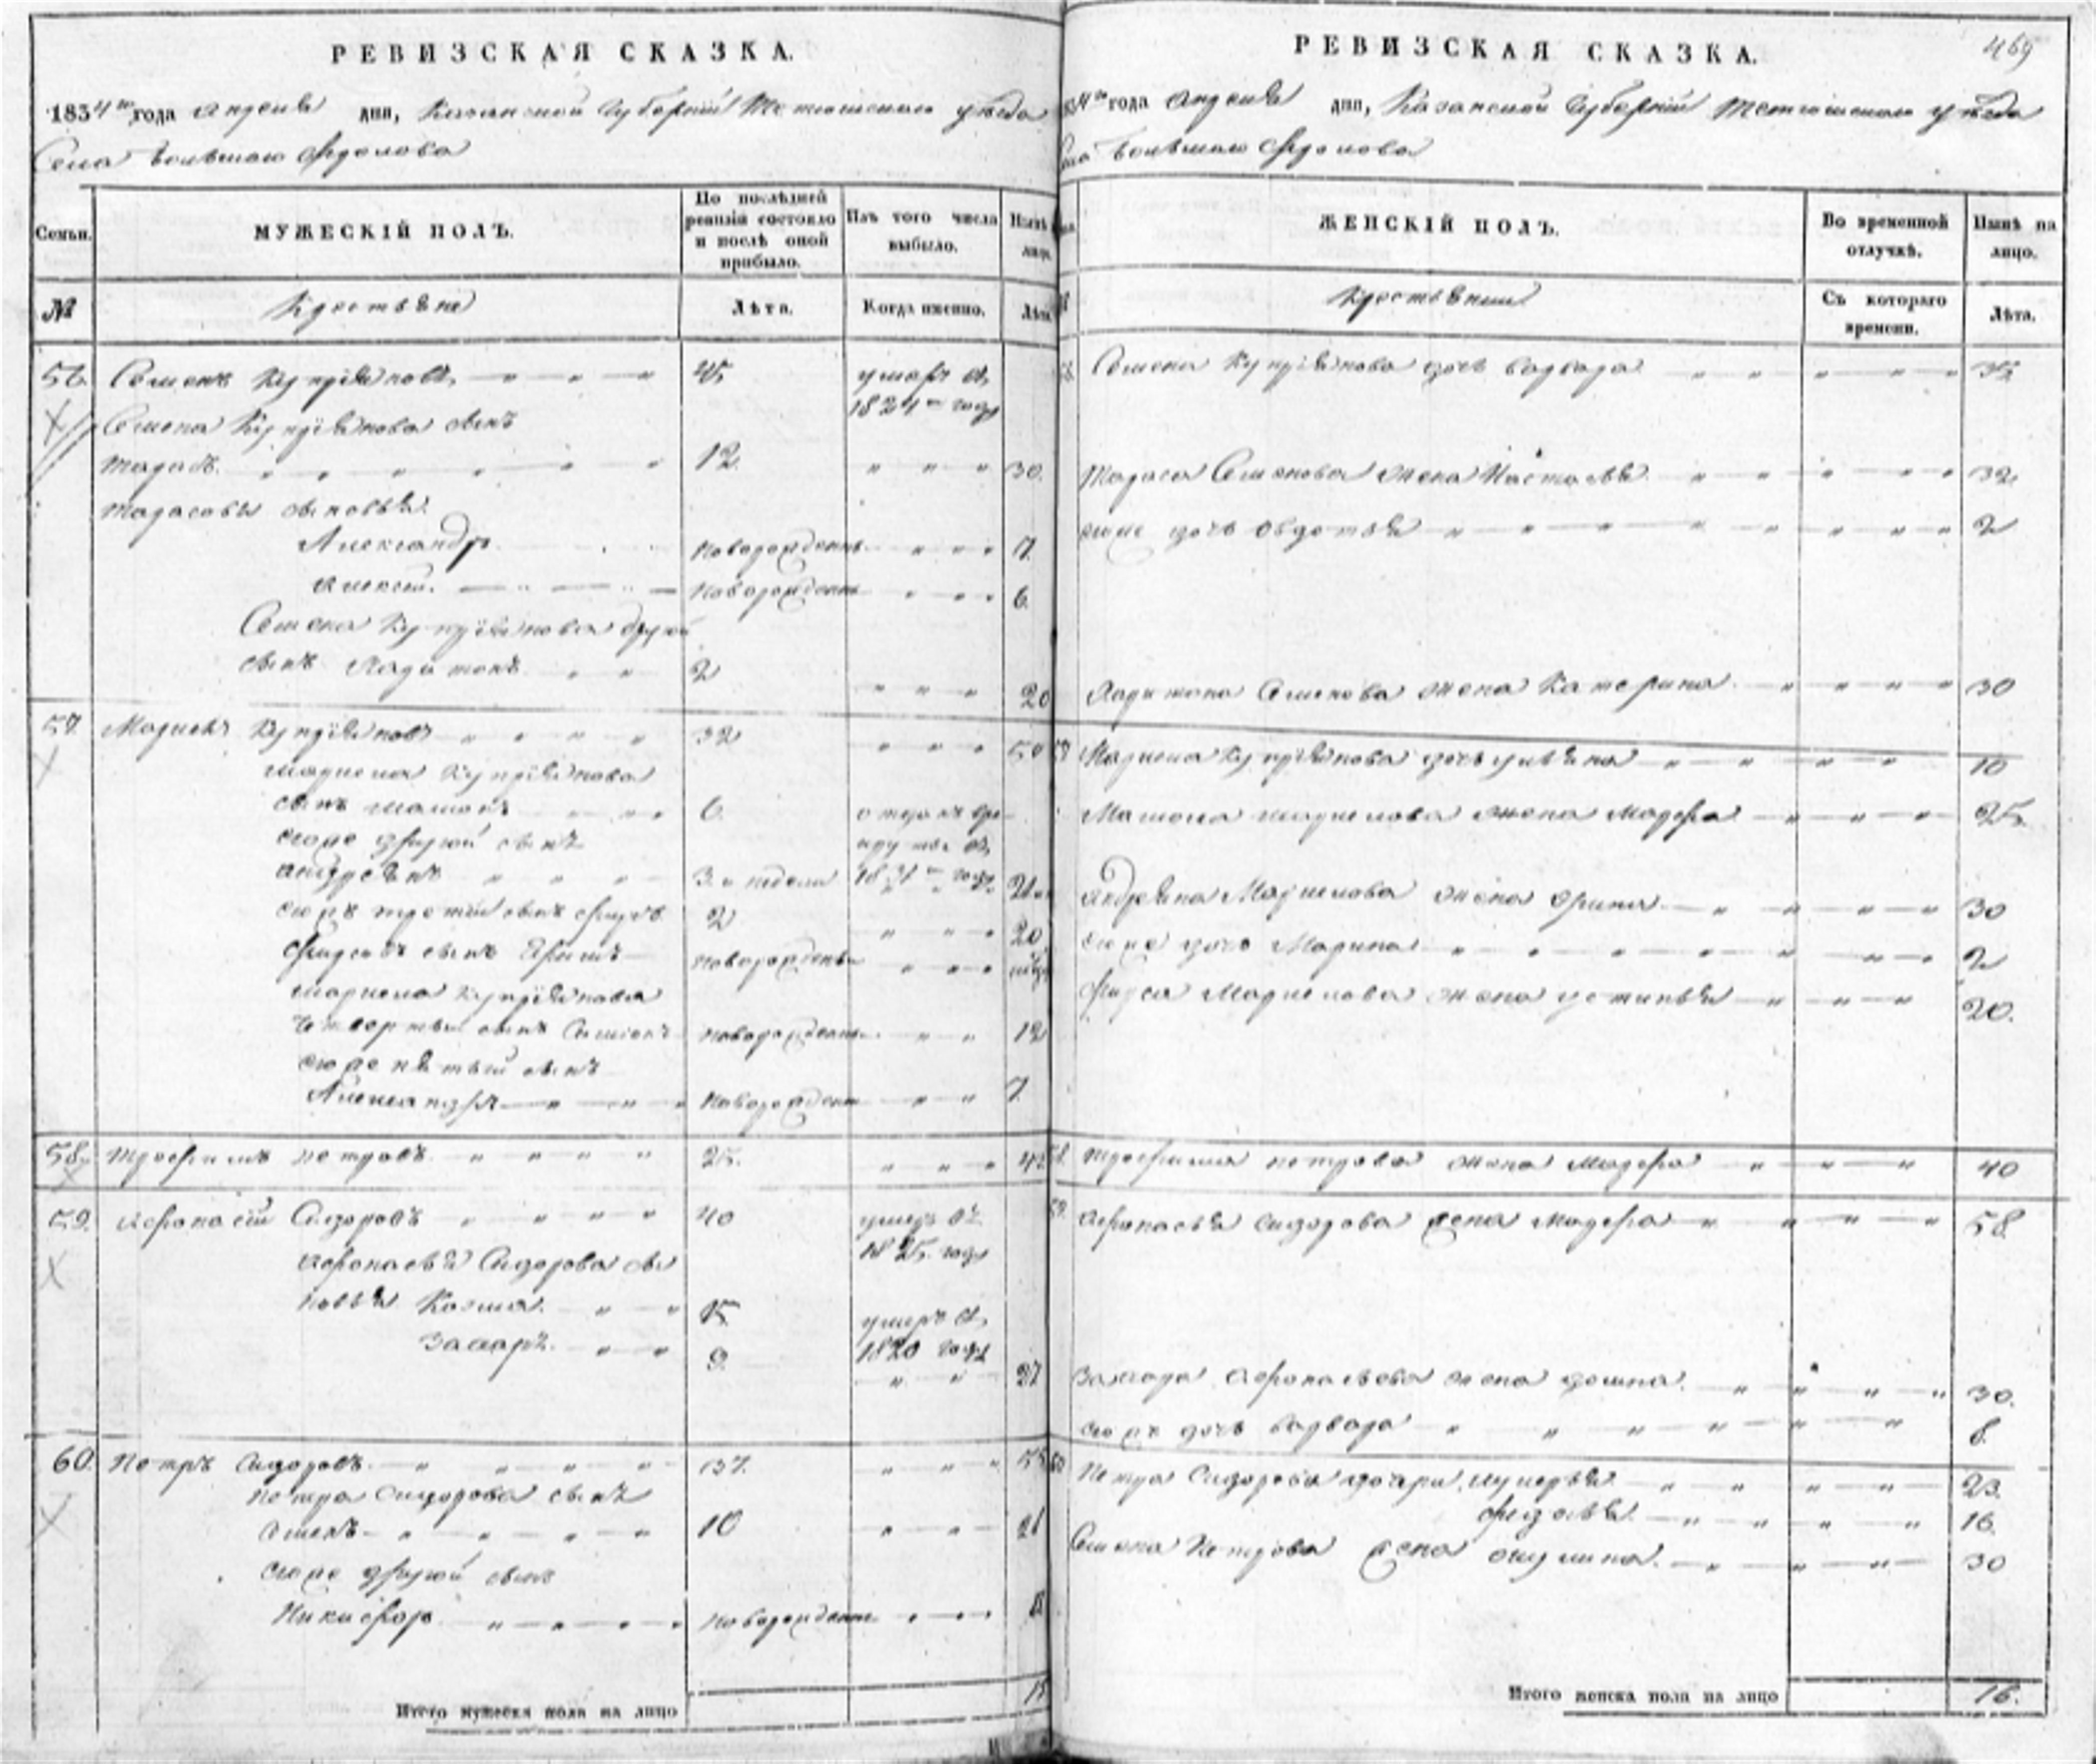 РЕВИЗСКАЯ СКАЗКА.
1834го года Апреля дня, Казанской Губернии Тетюшскаго уезда
Села Большаго
Семьи.
МУЖЕСКІЙ ПОЛЪ.
По послѣдней ревизіи состояло и послѣ оной прибыло.
Изъ того числа выбыло.
Нынѣ на лицо.
№
Крестьяне
Лѣта.
Когда именно.
Лѣта.
56. Семенъ Куприяновъ 45 умеръ въ
1824м году
Семена Куприянова сынъ
Тарасъ 12. 30.
Тарасовы сыновья
Александръ новорожденъ 7.
Алексей новорожденъ 6
Семена Куприянова другой
сынъ Харитонъ 2 20
57. Маркелъ Куприяновъ 32 50
Маркела Куприянова
сынъ 6. отданъ въ ре
круты въ
его же другой сынъ
Андреянъ 3. недели 1831м году
его же третий сынъ Фирсъ 2 20
Фирсовъ сынъ новорожденъ
Маркела Куприянова
четвертый сынъ новорожденъ 12
его же пятый сынъ
Александръ новорожденъ 7.
58. Трофимъ Петровъ 25.
59. Афонасей Сидоровъ 40 умеръ въ
1825. году
Афонасья Сидорова сы
новья Козма 15 умеръ въ
1820 году
Захаръ 9. 27
60. Петръ Сидоровъ 37.
Петра Сидорова сынъ
Семенъ 10
его же другой сынъ
Никифоръ новорожденъ
Итого мужеска пола на лицо
РЕВИЗСКАЯ СКАЗКА. 469
1834го года Апреля дня, Казанской Губернии Тетюшскаго уезда
Села Большаго
ЖЕНСКІЙ ПОЛЪ.
Во временной отлучкѣ.
Нынѣ на лицо.
Съ котораго времени.
Лѣта.
Семена Куприянова дочь Варвара 35
Тараса Семенова жена Настасья 32
его же дочь Овдотья 2
Харитона Семенова жена Катерина 30
Маркела Куприянова дочь Ульяна 10
Маркелова жена Марфа 25.
Андреяна Маркелова жена Орина 30
его же дочь Марина 2
Фирса Маркелова жена Устинья 20.
Трофима Петрова жена Марфа 40
59. Афонасья Сидорова жена Марфа 58
Захара Афонасьева жена Домна 30.
его же дочь Варвара 8.
Петра Сидорова дочери Лукерья 23.
Федосья 16.
Семена Петрова жена Окулина 30
Итого женска пола на лицо 16.